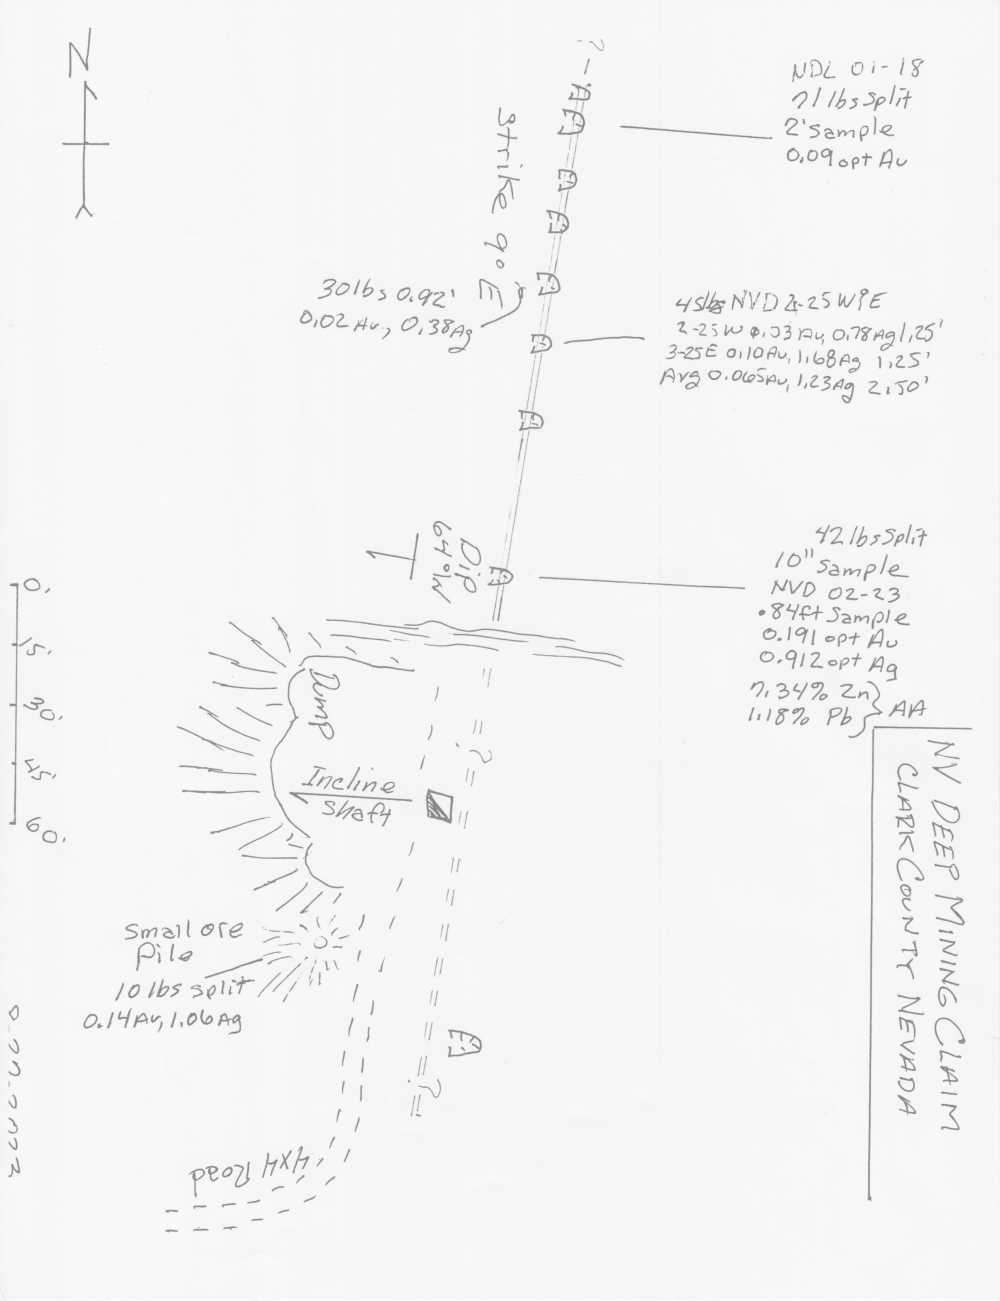 N
?
NDL 01-18
71 lbs Split
2' Sample
0.09 opt Au
Strike 9° E
30 lbs 0.92'
0.02 Au, 0.38 Ag
45 lbs NVD 2-25 W & E
2-25 W 0.03 Au, 0.78 Ag 1.25'
3-25E 0.10 Au, 1.68 Ag 1.25'
Avg 0.065 Au, 1.23 Ag 2.50'
Dip
64° W
42 lbs Split
10" Sample
NVD 02-23
.84ft Sample
0.191 opt Au
0.912 opt Ag
7.34% Zn
1.18% Pb
AA
0'
15'
30'
45'
60'
Dump
?
Incline
Shaft
NV DEEP MINING CLAIM
CLARK COUNTY NEVADA
Small ore
Pile
10 lbs split
0.14 Au, 1.06 Ag
?
4x4 Road